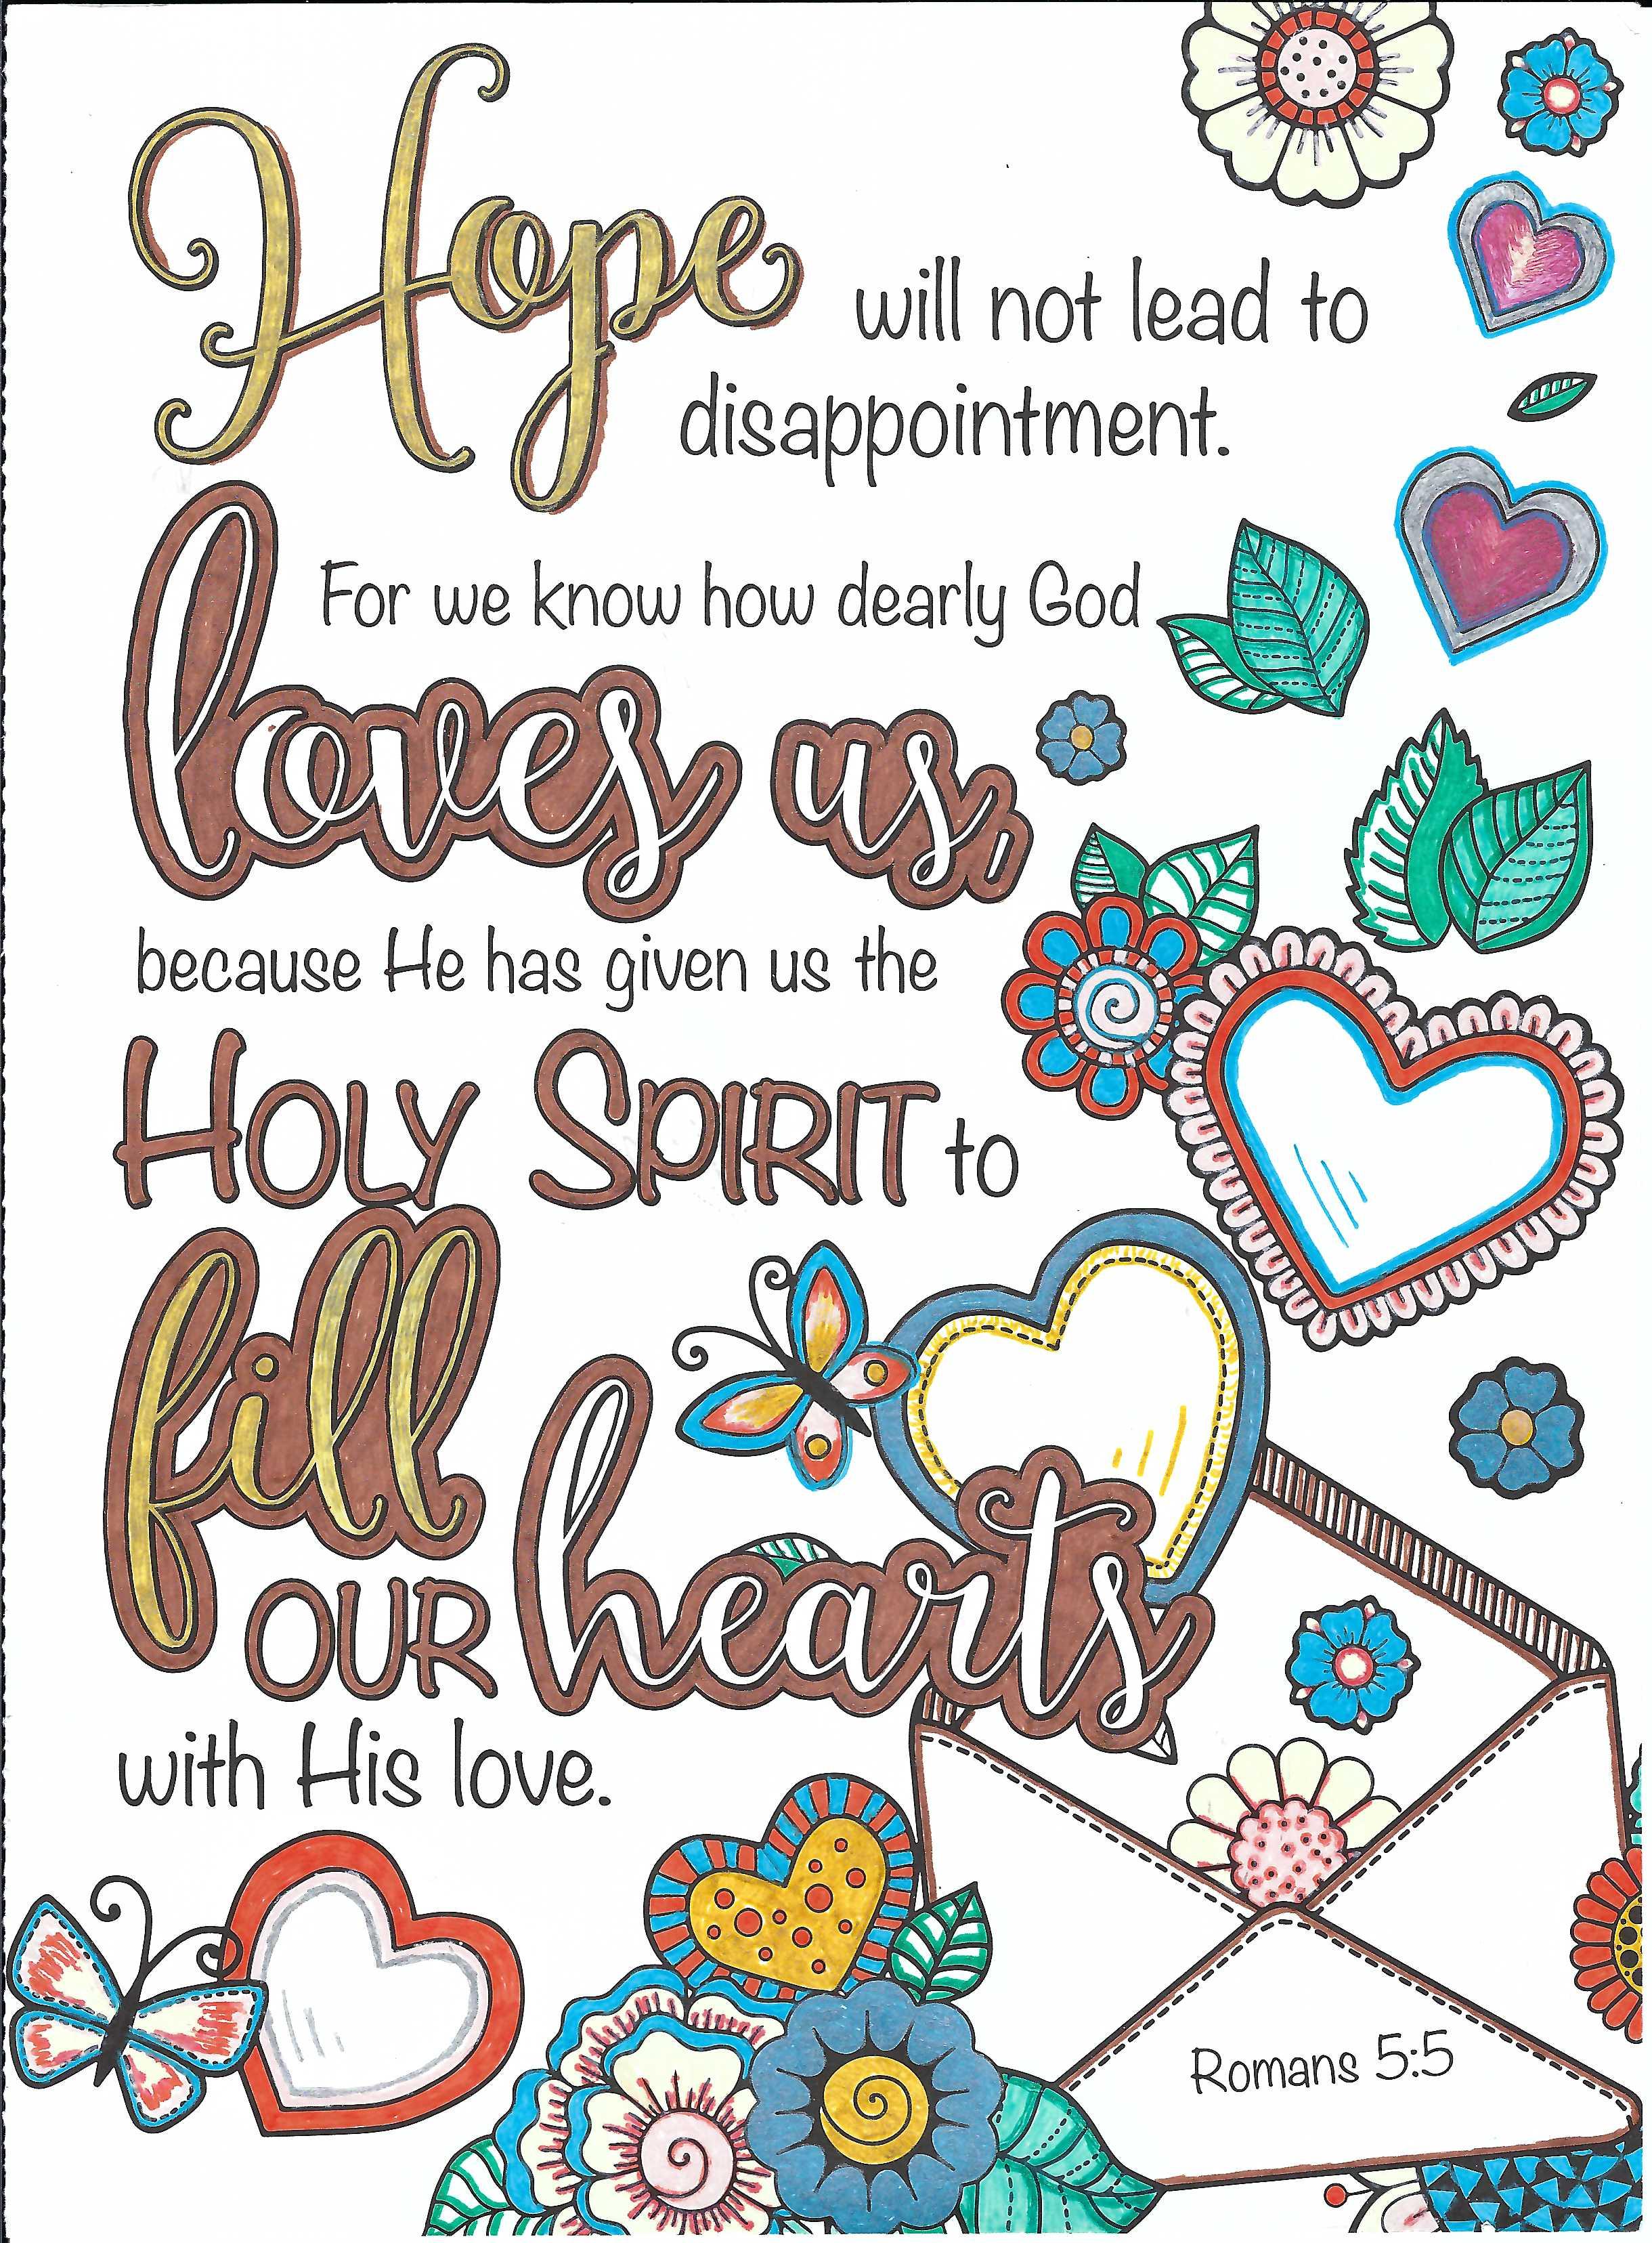 Hope will not lead to
disappointment.
For we know how dearly God
loves us,
because He has given us the
HOLY SPIRIT to
fill
OUR hearts
with His love.
Romans 5:5